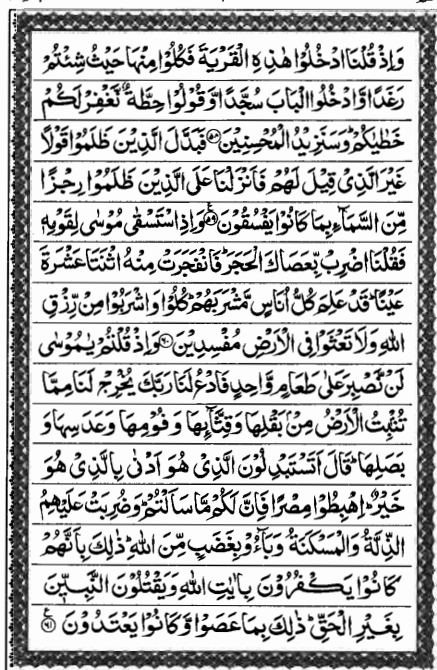 وَاِذْ قُلْنَا ادْخُلُوْا هٰذِهِ الْقَرْيَةَ فَكُلُوْا مِنْهَا حَيْثُ شِئْتُمْ
رَغَدًا وَّادْخُلُوا الْبَابَ سُجَّدًا وَّقُوْلُوْا حِطَّةٌ نَّغْفِرْ لَكُمْ
خَطٰيٰكُمْ ؕ وَسَنَزِيْدُ الْمُحْسِنِيْنَ ﴿۵۸﴾ فَبَدَّلَ الَّذِيْنَ ظَلَمُوْا قَوْلًا
غَيْرَ الَّذِيْ قِيْلَ لَهُمْ فَاَنْزَلْنَا عَلَى الَّذِيْنَ ظَلَمُوْا رِجْزًا
مِّنَ السَّمَآءِ بِمَا كَانُوْا يَفْسُقُوْنَ ﴿۵۹﴾ وَاِذِ اسْتَسْقٰى مُوْسٰى لِقَوْمِهٖ
فَقُلْنَا اضْرِبْ بِّعَصَاكَ الْحَجَرَ ؕ فَانْفَجَرَتْ مِنْهُ اثْنَتَا عَشْرَةَ
عَيْنًا ؕ قَدْ عَلِمَ كُلُّ اُنَاسٍ مَّشْرَبَهُمْ ؕ كُلُوْا وَاشْرَبُوْا مِنْ رِّزْقِ
اللهِ وَلَا تَعْثَوْا فِى الْاَرْضِ مُفْسِدِيْنَ ﴿۶۰﴾ وَاِذْ قُلْتُمْ يٰمُوْسٰى
لَنْ نَّصْبِرَ عَلٰى طَعَامٍ وَّاحِدٍ فَادْعُ لَنَا رَبَّكَ يُخْرِجْ لَنَا مِمَّا
تُنْۢبِتُ الْاَرْضُ مِنْۢ بَقْلِهَا وَقِثَّآئِهَا وَفُوْمِهَا وَعَدَسِهَا وَ
بَصَلِهَا ؕ قَالَ اَتَسْتَبْدِلُوْنَ الَّذِيْ هُوَ اَدْنٰى بِالَّذِيْ هُوَ
خَيْرٌ ؕ اِهْبِطُوْا مِصْرًا فَاِنَّ لَكُمْ مَّا سَاَلْتُمْ ؕ وَضُرِبَتْ عَلَيْهِمُ
الذِّلَّةُ وَالْمَسْكَنَةُ وَبَآءُوْ بِغَضَبٍ مِّنَ اللهِ ؕ ذٰلِكَ بِاَنَّهُمْ
كَانُوْا يَكْفُرُوْنَ بِاٰيٰتِ اللهِ وَيَقْتُلُوْنَ النَّبِيّٖنَ
بِغَيْرِ الْحَقِّ ؕ ذٰلِكَ بِمَا عَصَوْا وَّكَانُوْا يَعْتَدُوْنَ ﴿۶۱﴾